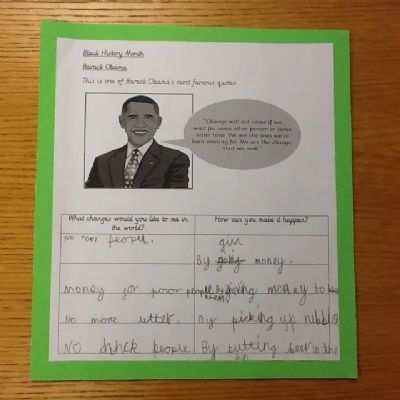 Black History Month
Barack Obama
This is one of Barack Obama's most famous quotes
"Change will not come if we
wait for some other person or some
other time. We are the ones we've
been waiting for. We are the change
that we seek."
What changes would you like to see in
the world?
How can you make it happen?
No poor people.
By money.
money for poor people
By giving money to
No more litter.
By picking up
No people
By putting beer in the